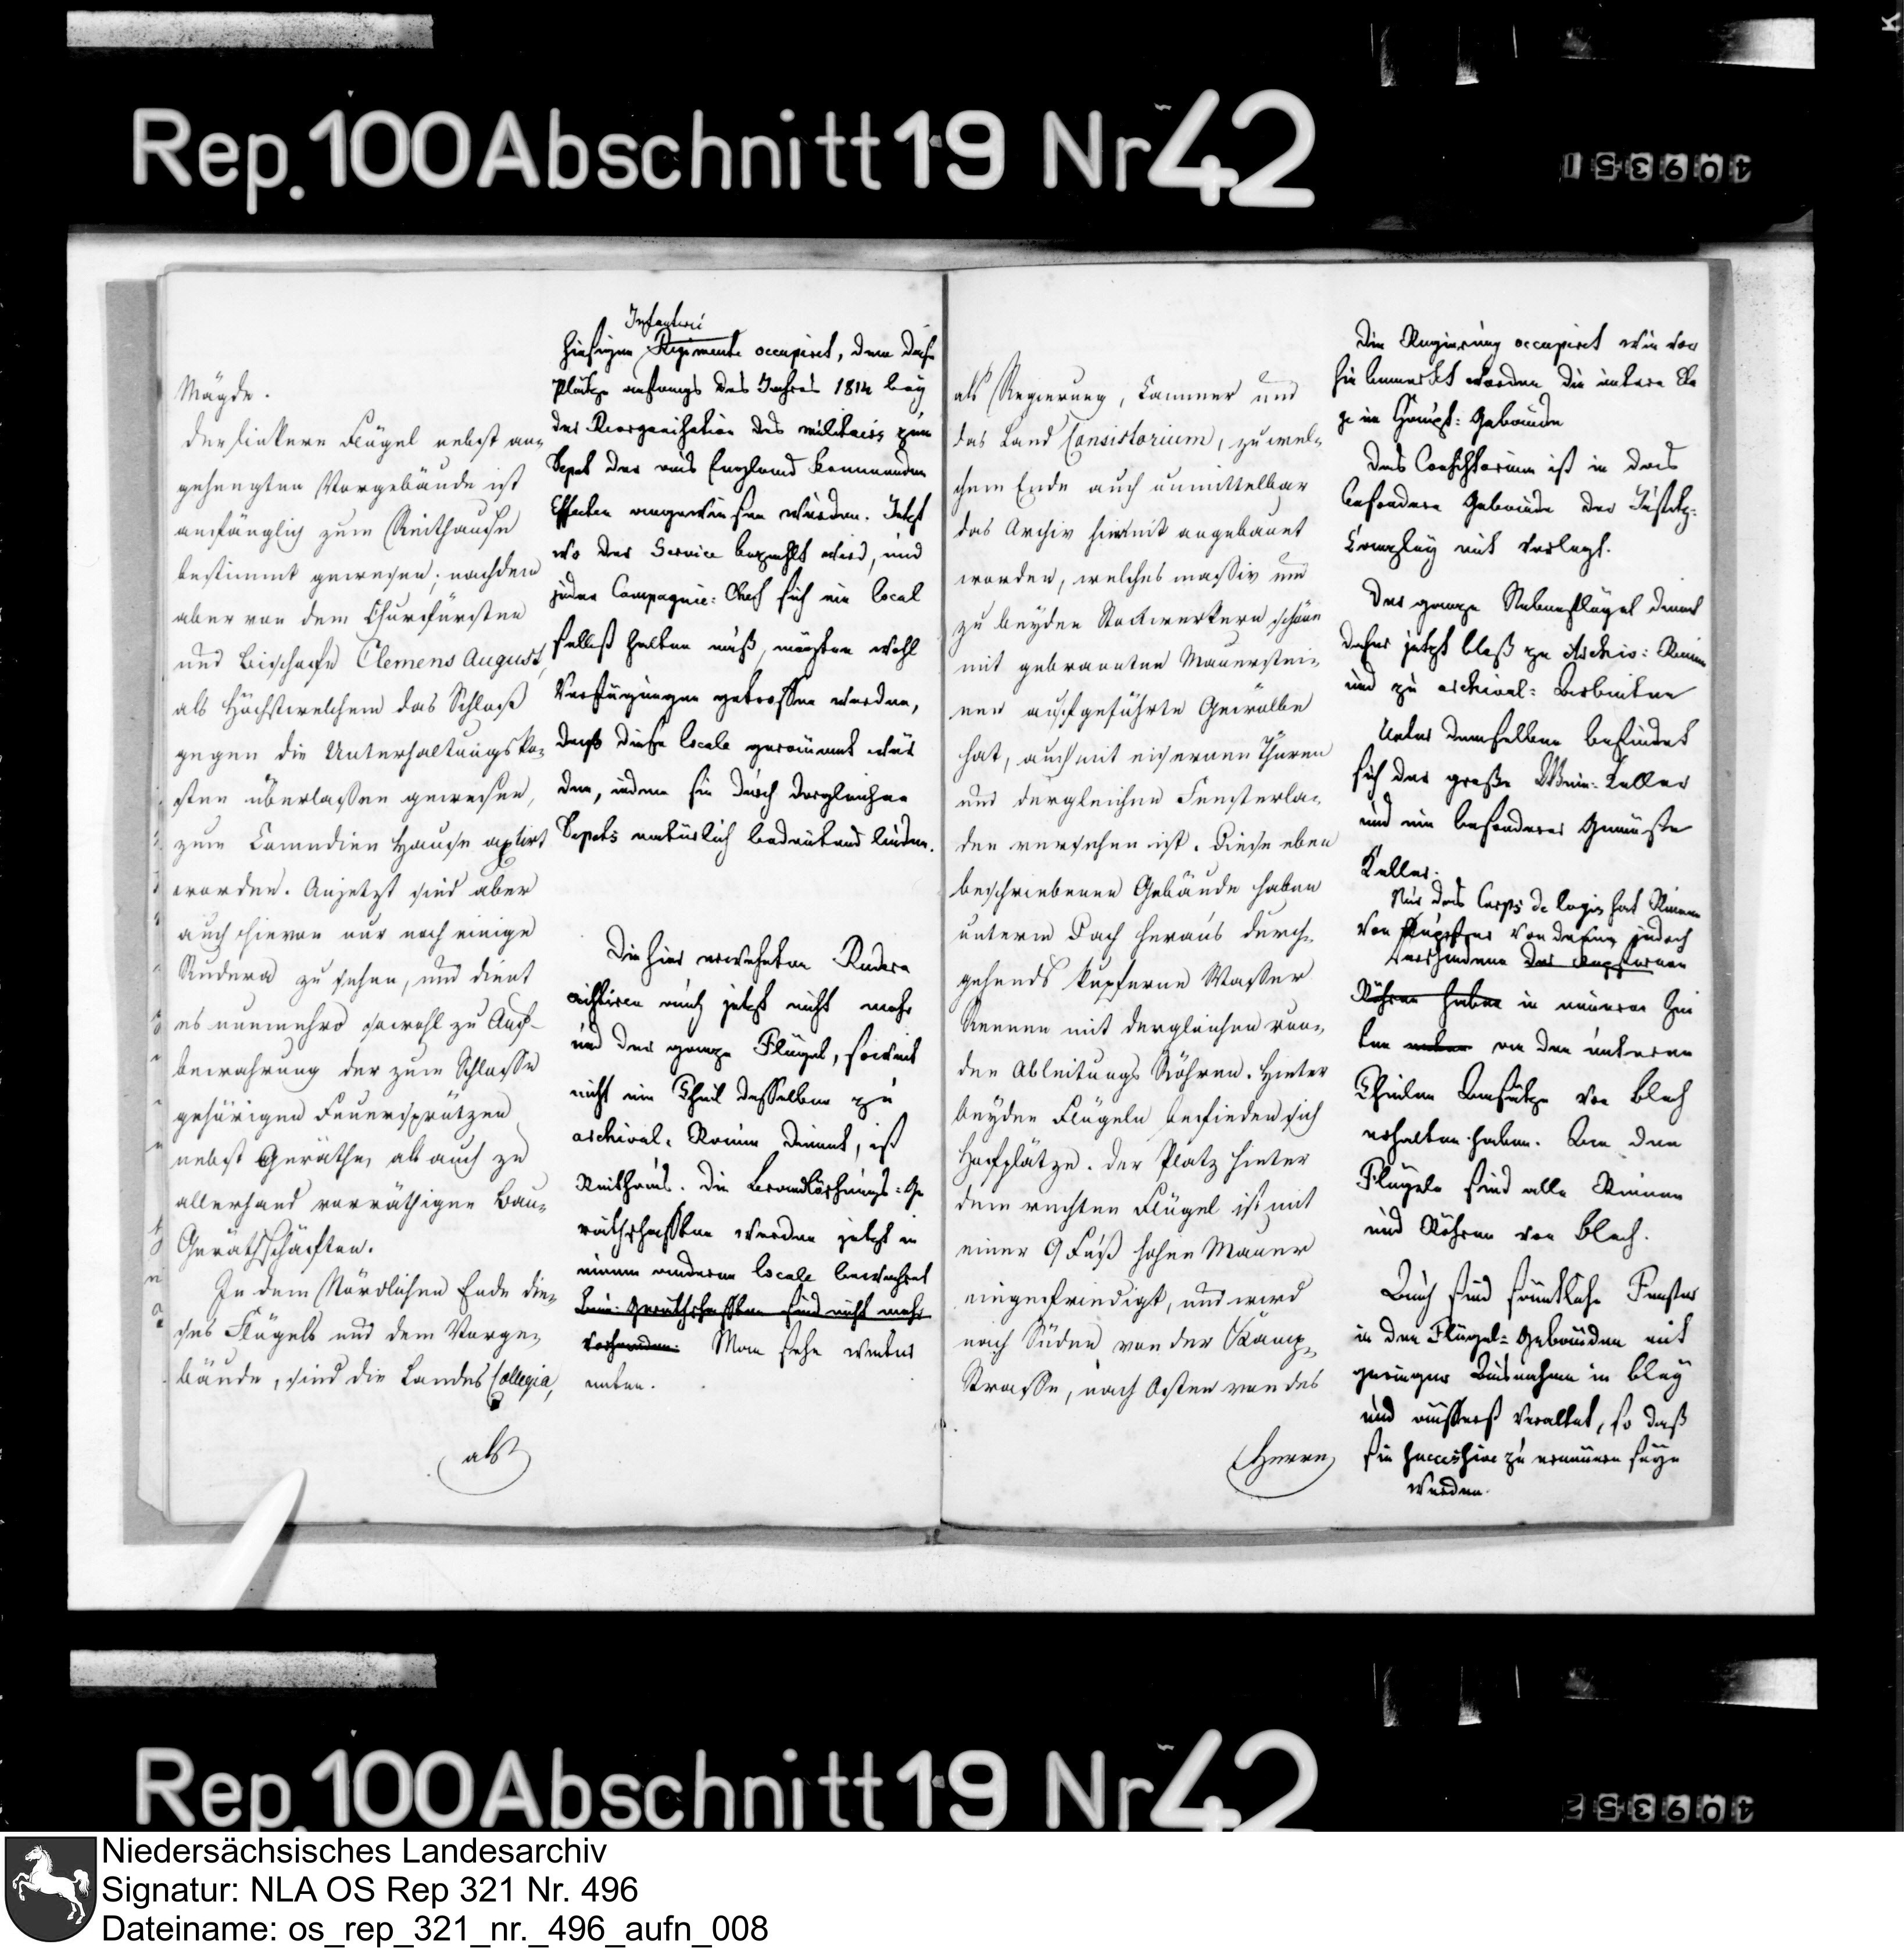 Rep. 100 Abschnitt 19 Nr 42
409351
Mägde.
Der linkere Flügel nebst an-
gehengten Vorgebäude ist
anfänglich zum Reithause
bestimmt gewesen; nachdem
aber von dem Churfürsten
und Bischofe Clemens August,
als Höchstwelchem das Schloß
gegen die Unterhaltungsko-
sten überlassen gewesen,
zum Comedien Hause aptirt
worden. Anjetzt sind aber
auch hievon nur noch einige
Rudera zu sehen, und dient
es nunmehro sowohl zu Auf-
bewahrung der zum Schlosse
gehörigen Feuersprützen
nebst Geräthe, als auch zu
allerhand vorräthigen Bau-
Geräthschaften.
In dem Nördlichen Ende die-
ses Flügels und dem Vorge-
bäude, sind die Landes Collegia,
als
Infanterie
hiesigen Regimente occupiret, dem diese
Plätze anfangs des Jahres 1814 bey
der Reorganisation des militairs zum
Depot der aus England kommenden
Effecten angewiesen wurden. Jetzt
wo der Service bezahlt wird, und
jeder Compagnie-Chef sich ein local
selbst halten muß, mögten wohl
Verfügungen getroffen werden,
daß diese locale geräumt wür
den, indem sie durch dergleichen
Depots natürlich bedeutend leiden.
Die hier erwehnten Rudera
existiren auch jetzt nicht mehr
und der ganze Flügel, soweit
nicht ein Theil desselben zu
archival-Raume dienet, ist
Reithaus. Die Brandlöschungs-Ge
räthschaften werden jetzt in
einem anderen locale bewahret
Bau-Geräthschaften sind nicht mehr
vorhanden. Man sehe weiter
unten.
als Regierung, Cammer und
das Land Consistorium, zu wel-
chem Ende auch unmittelbar
das Archiv hiemit angebauet
worden, welches massiv und
zu beyden Stockwerkern schöne
mit gebrannten Mauerstei-
nen aufgeführte Gewölbe
hat, auch mit eisernen Thüren
und dergleichen Fensterla-
den versehen ist. Diese eben
beschriebenen Gebäude haben
unterm Dach heraus durch-
gehends kupferne Wasser
Rennen mit dergleichen run-
den Ableitungs Röhren. Hinter
beyden Flügeln befinden sich
Hofplätze. Der Platz hinter
dem rechten Flügel ist mit
einer 9 Fuß hohen Mauer
eingefriedigt, und wird
nach Süden von der Kamp-
Strasse, nach Osten von des
Herrn
Die Regierung occupiret wie vor
hin bemerkt worden die untere Eta
ge im Haupt-Gebäude
Das Consistorium ist in das
besondere Gebäude der Justitz-
Canzley mit verlegt.
Der ganze Nebenflügel dienet
daher jetzt bloß zu Archiv-Räumen
und zu archival-Arbeiten
Unter demselben befindet
sich der große Wein-Keller
und ein besonderer Gemüse
Keller.
Nur das Corps de logis hat Rinnen
von Kupfer von denen jedoch
vorhandene der kupfernen
Röhren haben in neueren Zei
ten an den unteren
Theilen Ansätze von Blech
erhalten haben. An den
Flügeln sind alle Rinnen
und Röhren von Blech.
Auch sind sämtliche Fenster
in den Flügel-Gebäuden mit
geringer Ausnahme in Bley
und äusserst veraltet, so daß
sie successive zu erneuern seyn
werden.
Rep. 100 Abschnitt 19 Nr 42
409352
Niedersächsisches Landesarchiv
Signatur: NLA OS Rep 321 Nr. 496
Dateiname: os_rep_321_nr._496_aufn_008